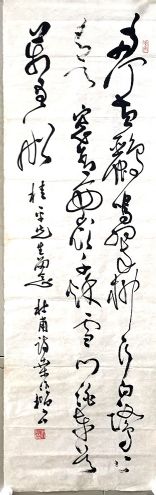 兩个黃鸝鳴翠柳一行白鷺上
青天窓含西嶺千秋雪門泊東吳
萬里船
先生留念 杜甫詩